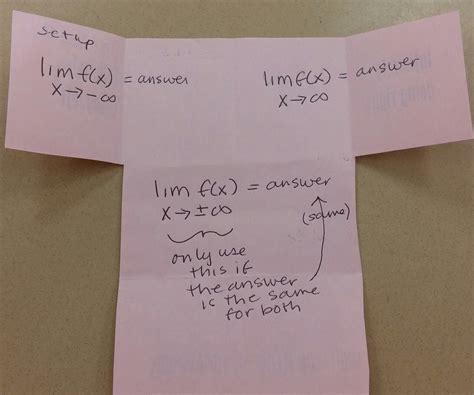 setup
lim f(x) = answer
x→-∞
lim f(x) = answer
x→∞
lim f(x) = answer
x→±∞
(same)
only use
this if
the answer
is the same
for both